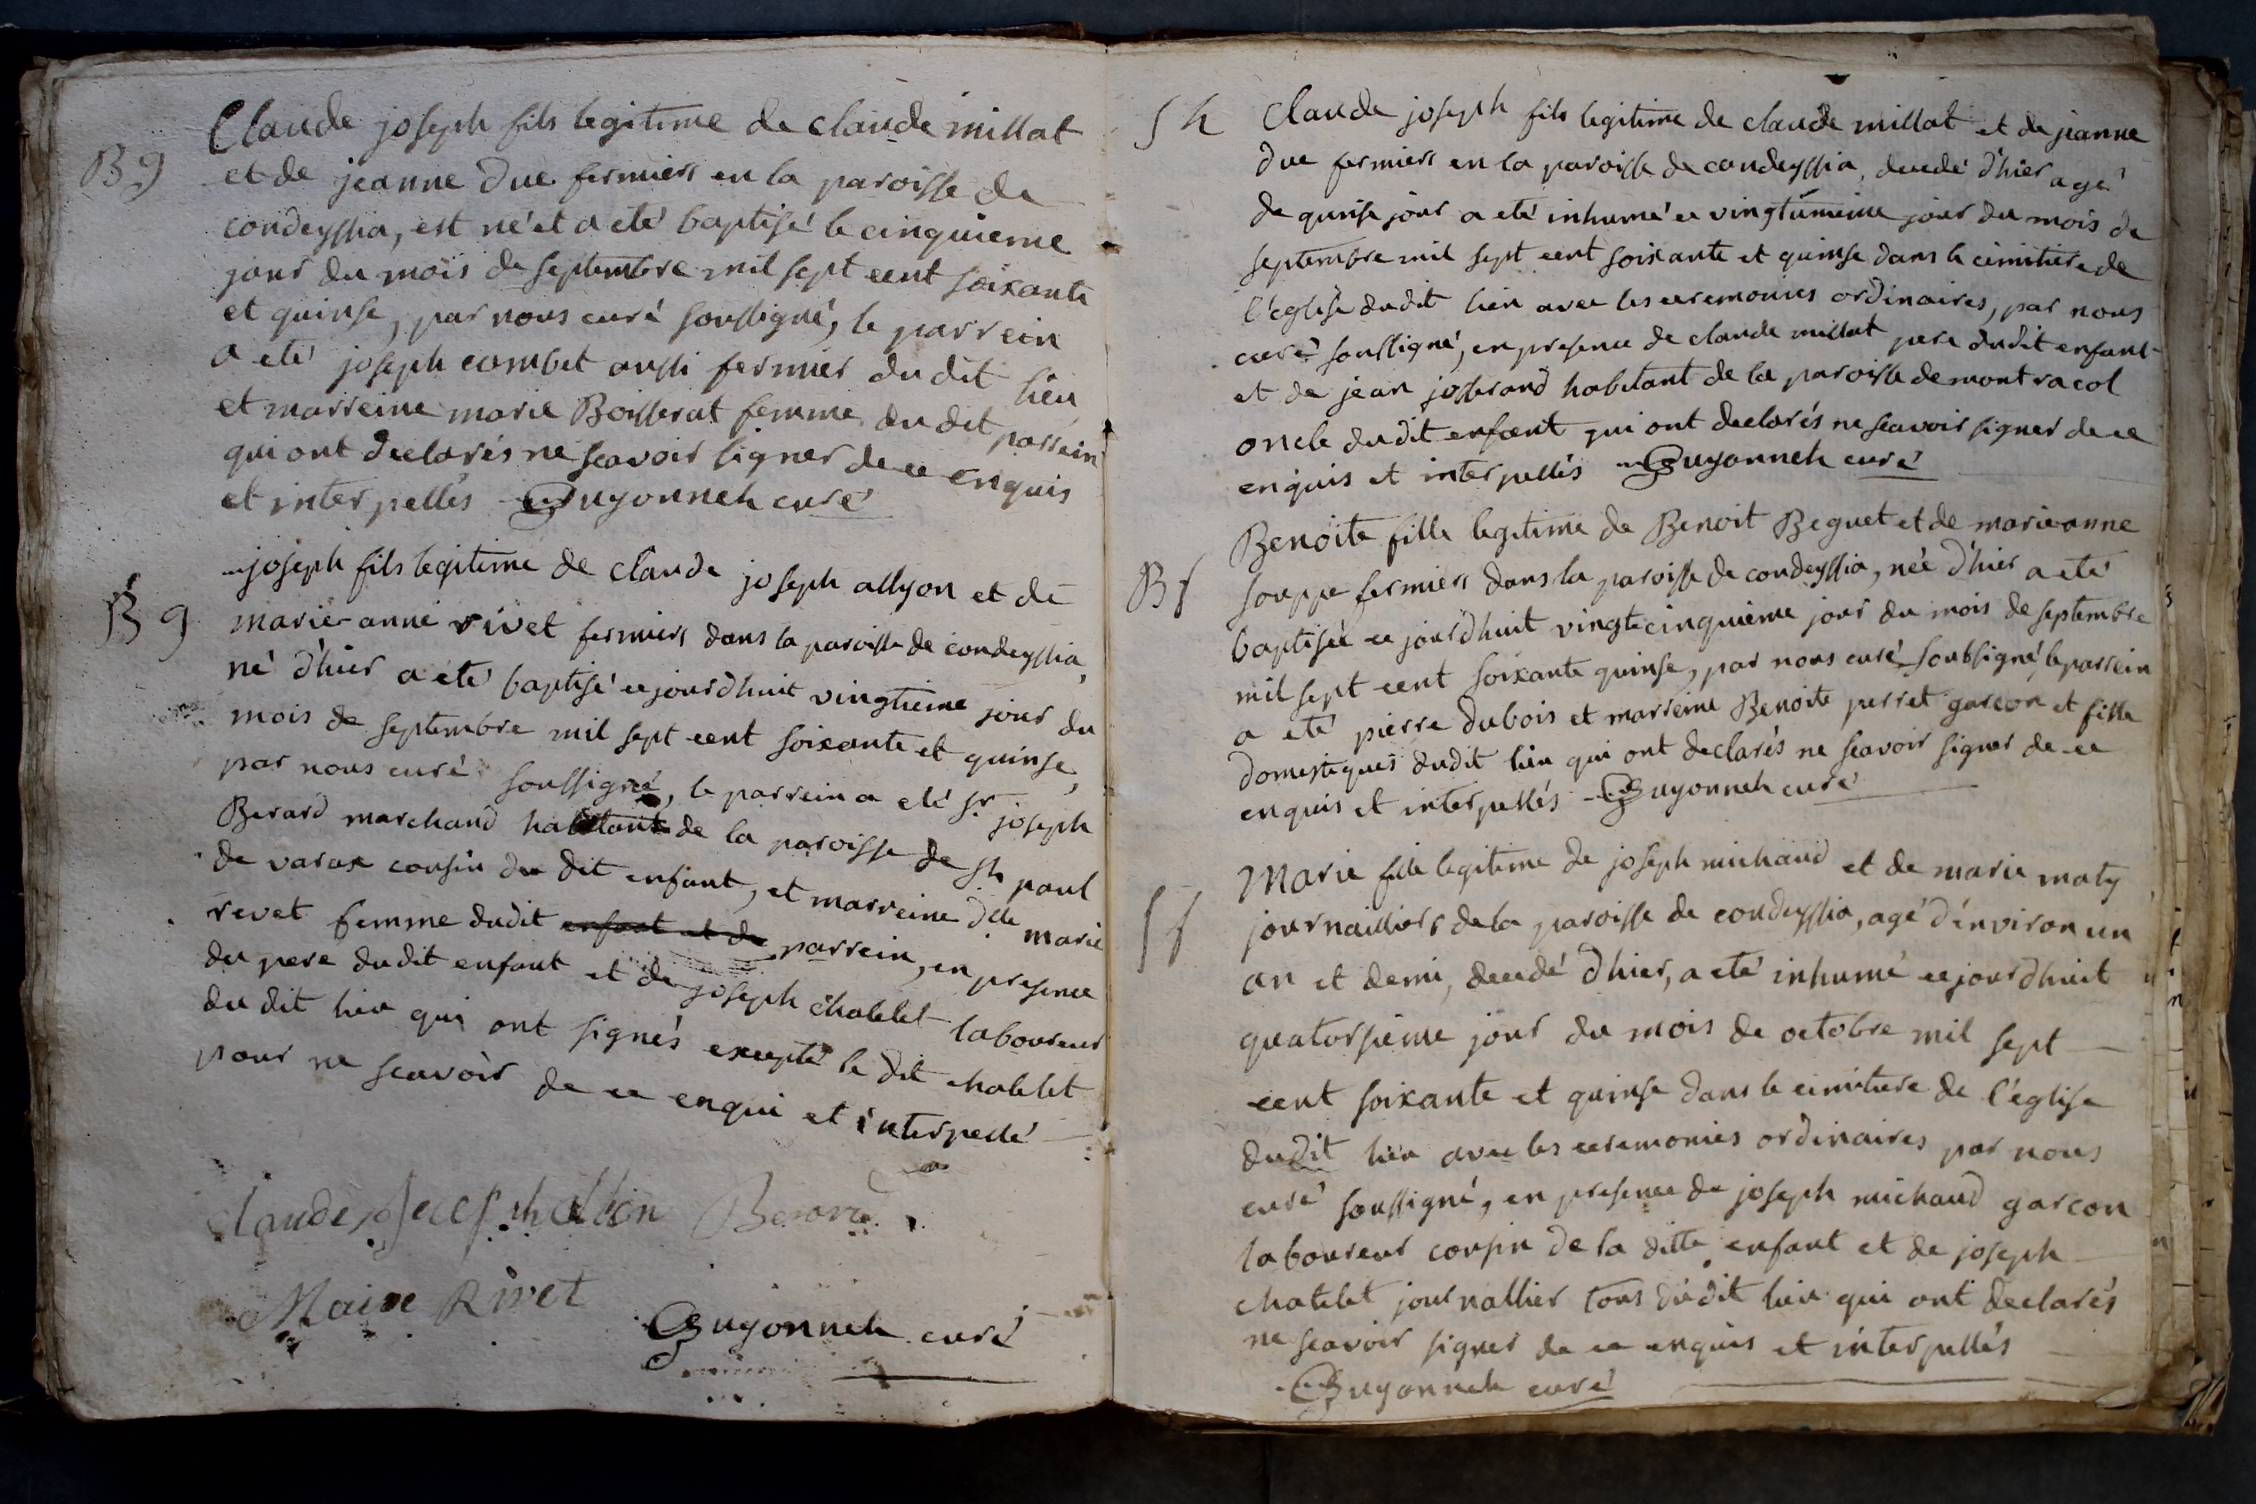 Claude joseph fils legitime de claude millat
B g
et de jeanne due fermiers en la paroisse de
condeyssia, est né et a eté baptisé le cinquieme
jour du mois de septembre mil sept cent soixante
et quinse, par nous curé soussigné, le parrein
a eté joseph combet aussi fermier du dit lieu
et marreine marie Boisserat femme du dit parrein
qui ont declarés ne scavoir signer de ce enquis
et interpellés Guyonneh curé
joseph fils legitime de claude joseph allyon et de
B g
marie anne rivet fermiers dans la paroisse de condeyssia,
né d'hier a eté baptisé ce jourdhuit vingtieme jour du
mois de septembre mil sept cent soixante et quinse,
par nous curé soussigné, le parrein a eté sr joseph
Berard marchand habitant de la paroisse de st paul
de varax cousin du dit enfant, et marreine dlle marie
revet femme dudit enfant et de parrein, en presence
du pere dudit enfant et de joseph chatelet laboureur
du dit lieu qui ont signés excepté le dit chatelet
pour ne scavoir de ce enqui et interpellé
Claude joseph allion Berard
Maire Rivet
Guyonneh curé
S h
Claude joseph fils legitime de claude millat et de jeanne
due fermiers en la paroisse de condeyssia, decedé d'hier agé
de quinse jour a eté inhumé ce vingtunieme jour du mois de
septembre mil sept cent soixante et quinse dans le cimitiere de
l'eglise dudit lieu avec les ceremonies ordinaires, par nous
curé soussigné, en presence de claude millat pere dudit enfant
et de jean josserand habitant de la paroisse de montracol
oncle dudit enfant qui ont declarés ne scavoir signer de ce
enquis et interpellés Guyonneh curé
Benoite fille legitime de Benoit Beguet et de marie anne
B f
souppe fermiers dans la paroisse de condeyssia, née d'hier a eté
baptisée ce jourdhuit vingtcinquieme jour du mois de septembre
mil sept cent soixante quinse, par nous curé soubsigné, le parrein
a eté pierre dubois et marreine Benoite perret garcon et fille
domestiques dudit lieu qui ont declarés ne scavoir signer de ce
enquis et interpellés Guyonneh curé
Marie fille legitime de joseph michaud et de marie maty
S f
journailliers de la paroisse de condeyssia, agé d'environ un
an et demi, decedé d'hier, a eté inhumé ce jourdhuit
quatorsieme jour du mois de octobre mil sept
cent soixante et quinse dans le cimitiere de l'église
dudit lieu avec les ceremonies ordinaires par nous
curé soussigné, en presence de joseph michaud garcon
laboureur cousin de la ditte enfant et de joseph
chatelet journallier tous dudit lieu qui ont declarés
ne scavoir signer de ce enquis et interpellés
Guyonneh curé